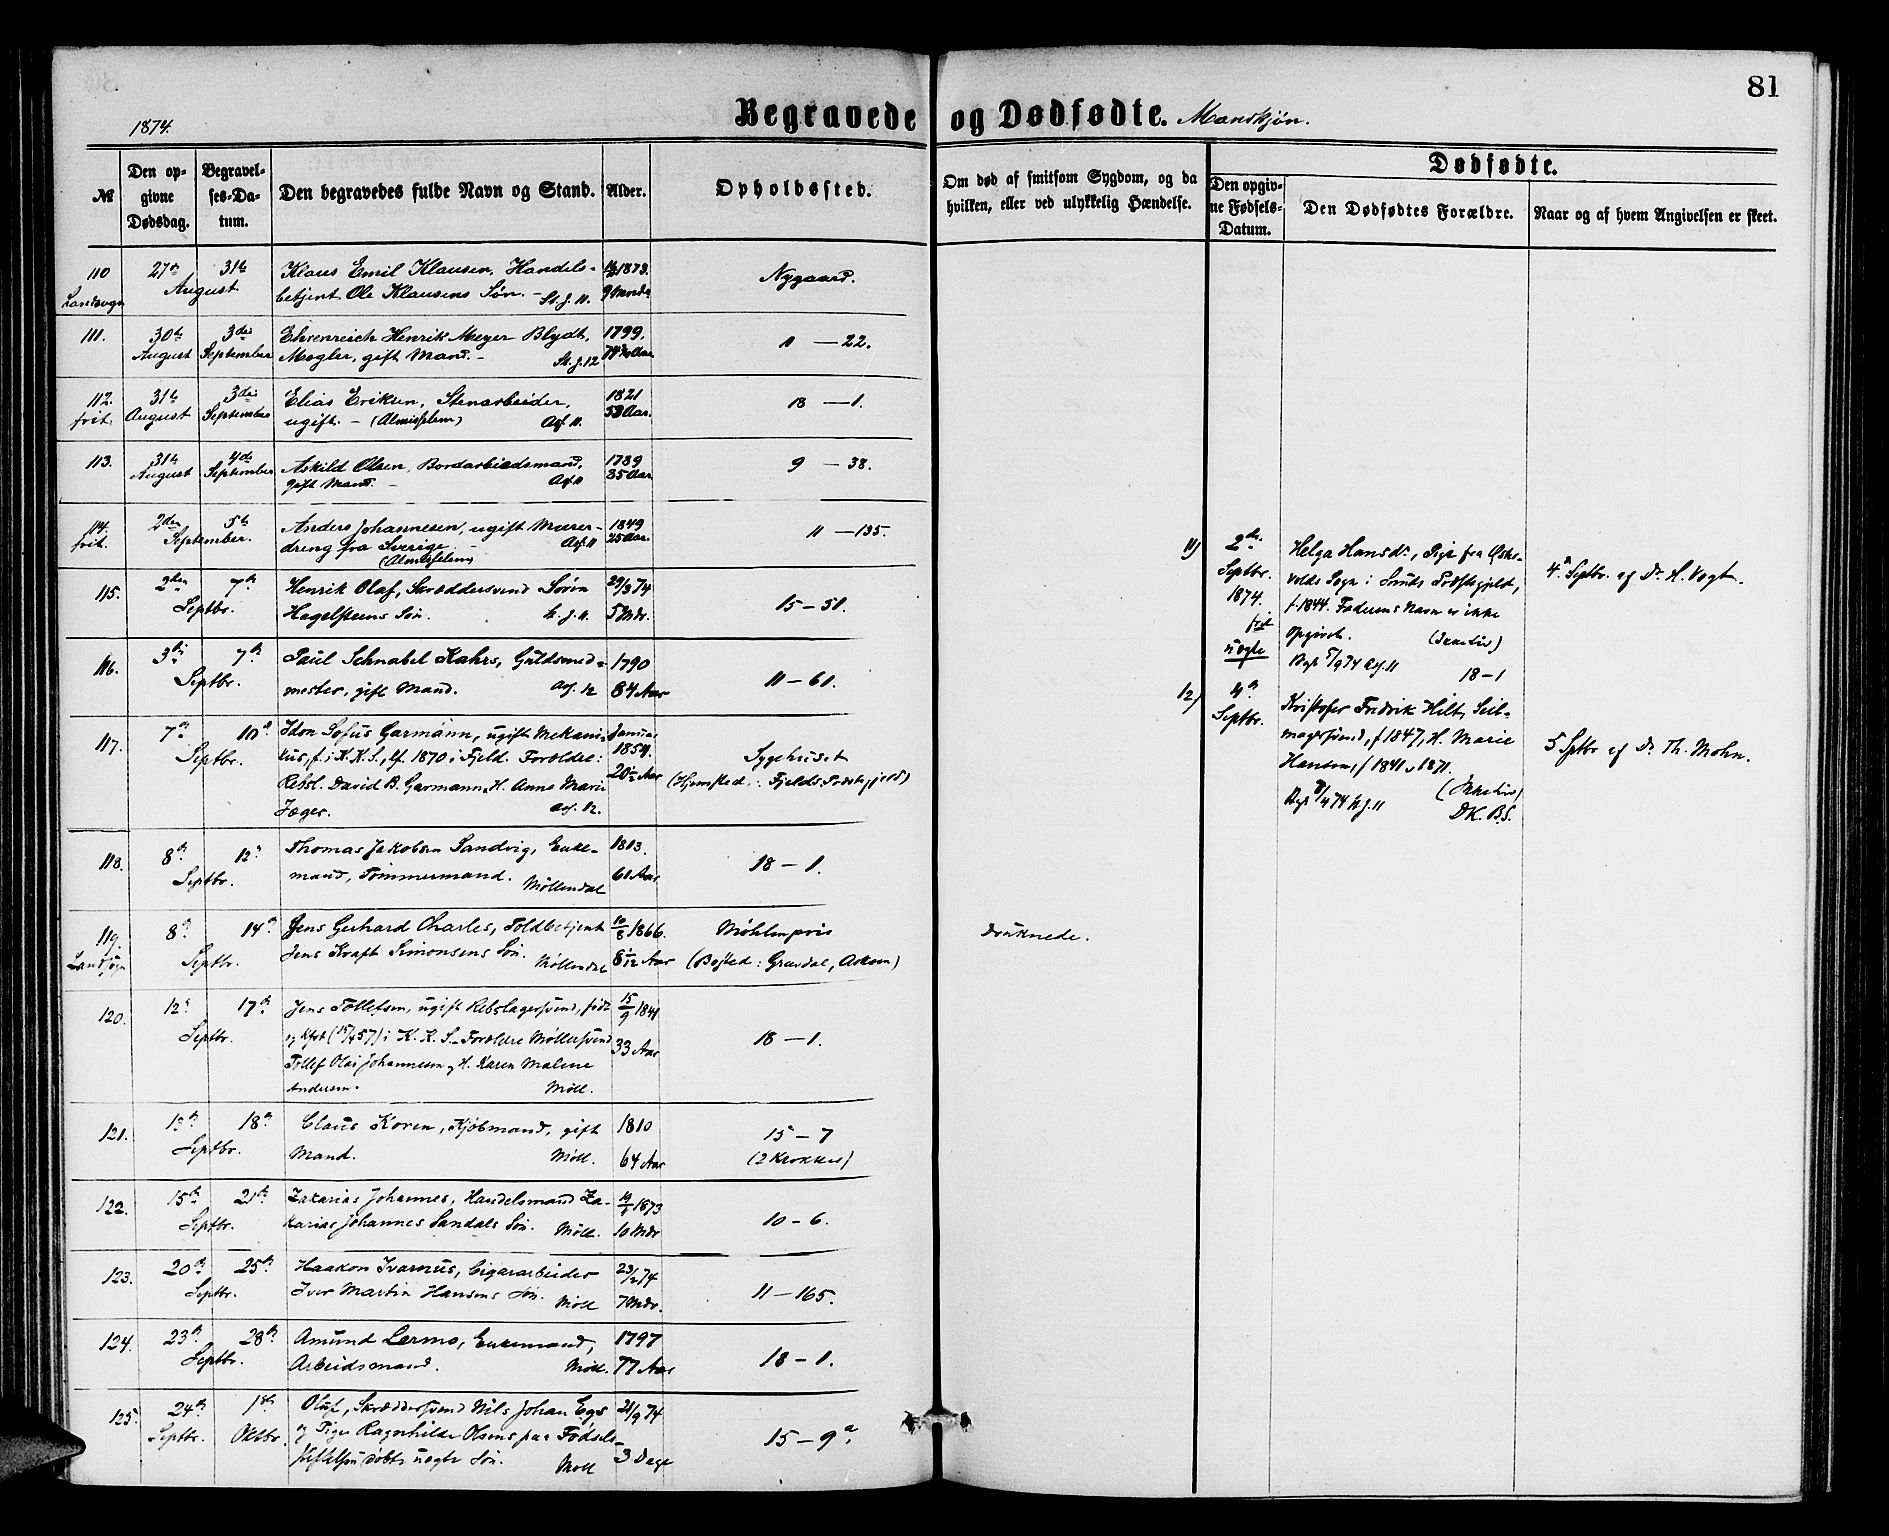 81
1874.
Begravede og Dødfødte. Mandkjøn.
№
Den opgivne Dødsdag.
Begravelses-Datum.
Den begravedes fulde Navn og Stand.
Alder.
Opholdssted.
Om død af smitsom Sygdom, og da hvilken, eller ved ulykkelig Hændelse.
Dødfødte.
Den opgivne Fødsels-Datum.
Den Dødfødtes Forældre.
Naar og af hvem Angivelsen er skeet.
110 27de 31te Klaus Emil Klausen, Handels- 1873. Nygaard.
Landsogn August betjent Ole Klausens Søn. – St. J. 11. 9 Mnder
111. 30te 3die Ehrenreich Henrik Meyer Blydt, 1799. 11 — 22.
August September Mægler, gift Mand. – St. J. 12
112. 31te 3die Elias Eriksen, Stenarbeider, 1821 18 — 1.
frit. August September ugift. – (Almisselem) Asf. 11. 53 Aar.
113. 31te 4de Askild Olsen, Bordarbeidsmand, 1789 9 — 38.
August September gift Mand. – Asf. 11 85 Aar
114. 2den 5te Anders Johannesen, ugift Murer- 1849 11 — 135.
frit. September. dreng fra Sverige. Asf. 11 25 Aar.
(Almisselem)
115. 2den 7de Henrik Olaf, Skræddersvend Søren 29/3 74 15 – 51.
Septbr. Hagelsteens Søn. St. J. 11. 5 Mdr.
116. 3die 7de Paul Schnabel Kahrs, Guldsmed- 1790 11 – 61.
Septbr. mester, gift Mand. Asf. 12 84 Aar
117. 7de 10de Idon Sofus Garmann, ugift Mekani- Januar
Septbr. kus, f. i K. K. S., 1870 i Fjeld. Forældre: 1854. Sygehuset
Rebsl. David B. Garmann, H. Anna Marie 20 Aar (Hjemsted: Fjelds Præstegjeld)
Jæger. Asf. 12.
118. 8de 12te Thomas Jakobsen Sandvig, Enke- 1813. 18 – 1.
Septbr. mand, Tømmermand. Møllendal 61 Aar
119. 8de 14de Jens Gerhard Charles, Toldbetjent 10/8 1866. Møhlenpris Druknede.
Landsogn Septbr. Jens Kraft Simonsens Søn. Møllendal 8 1/12 Aar (Bosted: Gravdal, Askøen)
120. 12te 17de Jens Tollefsen, ugift Rebslagersvend, født 15/9 1841 18 – 1.
Septbr. i K. K. S. Forældre Møllersvend 33 Aar
Tollef Olai Johannesen, H. Karen Malene
Andersen. Møll.
121. 13de 18de Claus Koren, Kjøbmand, gift 1810 15 – 7
Septbr. Mand. Møll. 64 Aar (2 Krokker)
122. 15de 21de Zakarias Johannes, Handelsmand Za- 1873 10 – 6.
Septbr. karias Johannes Sandals Søn. Møll. 10 Mdr
123. 20de 25de Haakon Ivarnus, Cigararbeider 23/2 74 11 – 165.
Septbr. Iver Martin Hansens Søn. Møll 7 Mdr.
124. 23de 28de Amund Lermo, Enkemand, 1797 18 – 1.
Septbr. Arbeidsmand. Møll. 77 Aar
125. 24de 1ste Oluf, Skræddersvend Nils Johan Egs 21/9 74 15 – 9a.
Septbr. Oktbr. og Pige Ragnhilde Olsens paa Fødsels-
stiftelsen døbte uægte Søn. Møll 3 Dage
11) 2den Septbr. 1874. uægte
Helga Hansdr., Pige fra Øske-
volds Sogn i Sunds Præstegjeld,
f. 1844. Faderens Navn er ikke
opgivet.
Begr. 5/9 74 Asf. 11 18 – 1
4de Septbr. af Dr. H. Vogt.
12) 4de Septbr.
Kristofer Fredrik Hilt, Seil-
magersvend, f. 1847, H. Marie
Hansen, f. 1841, 1871.
DK. B.S.
5 Sptbr af Dr. Th. Mohn.